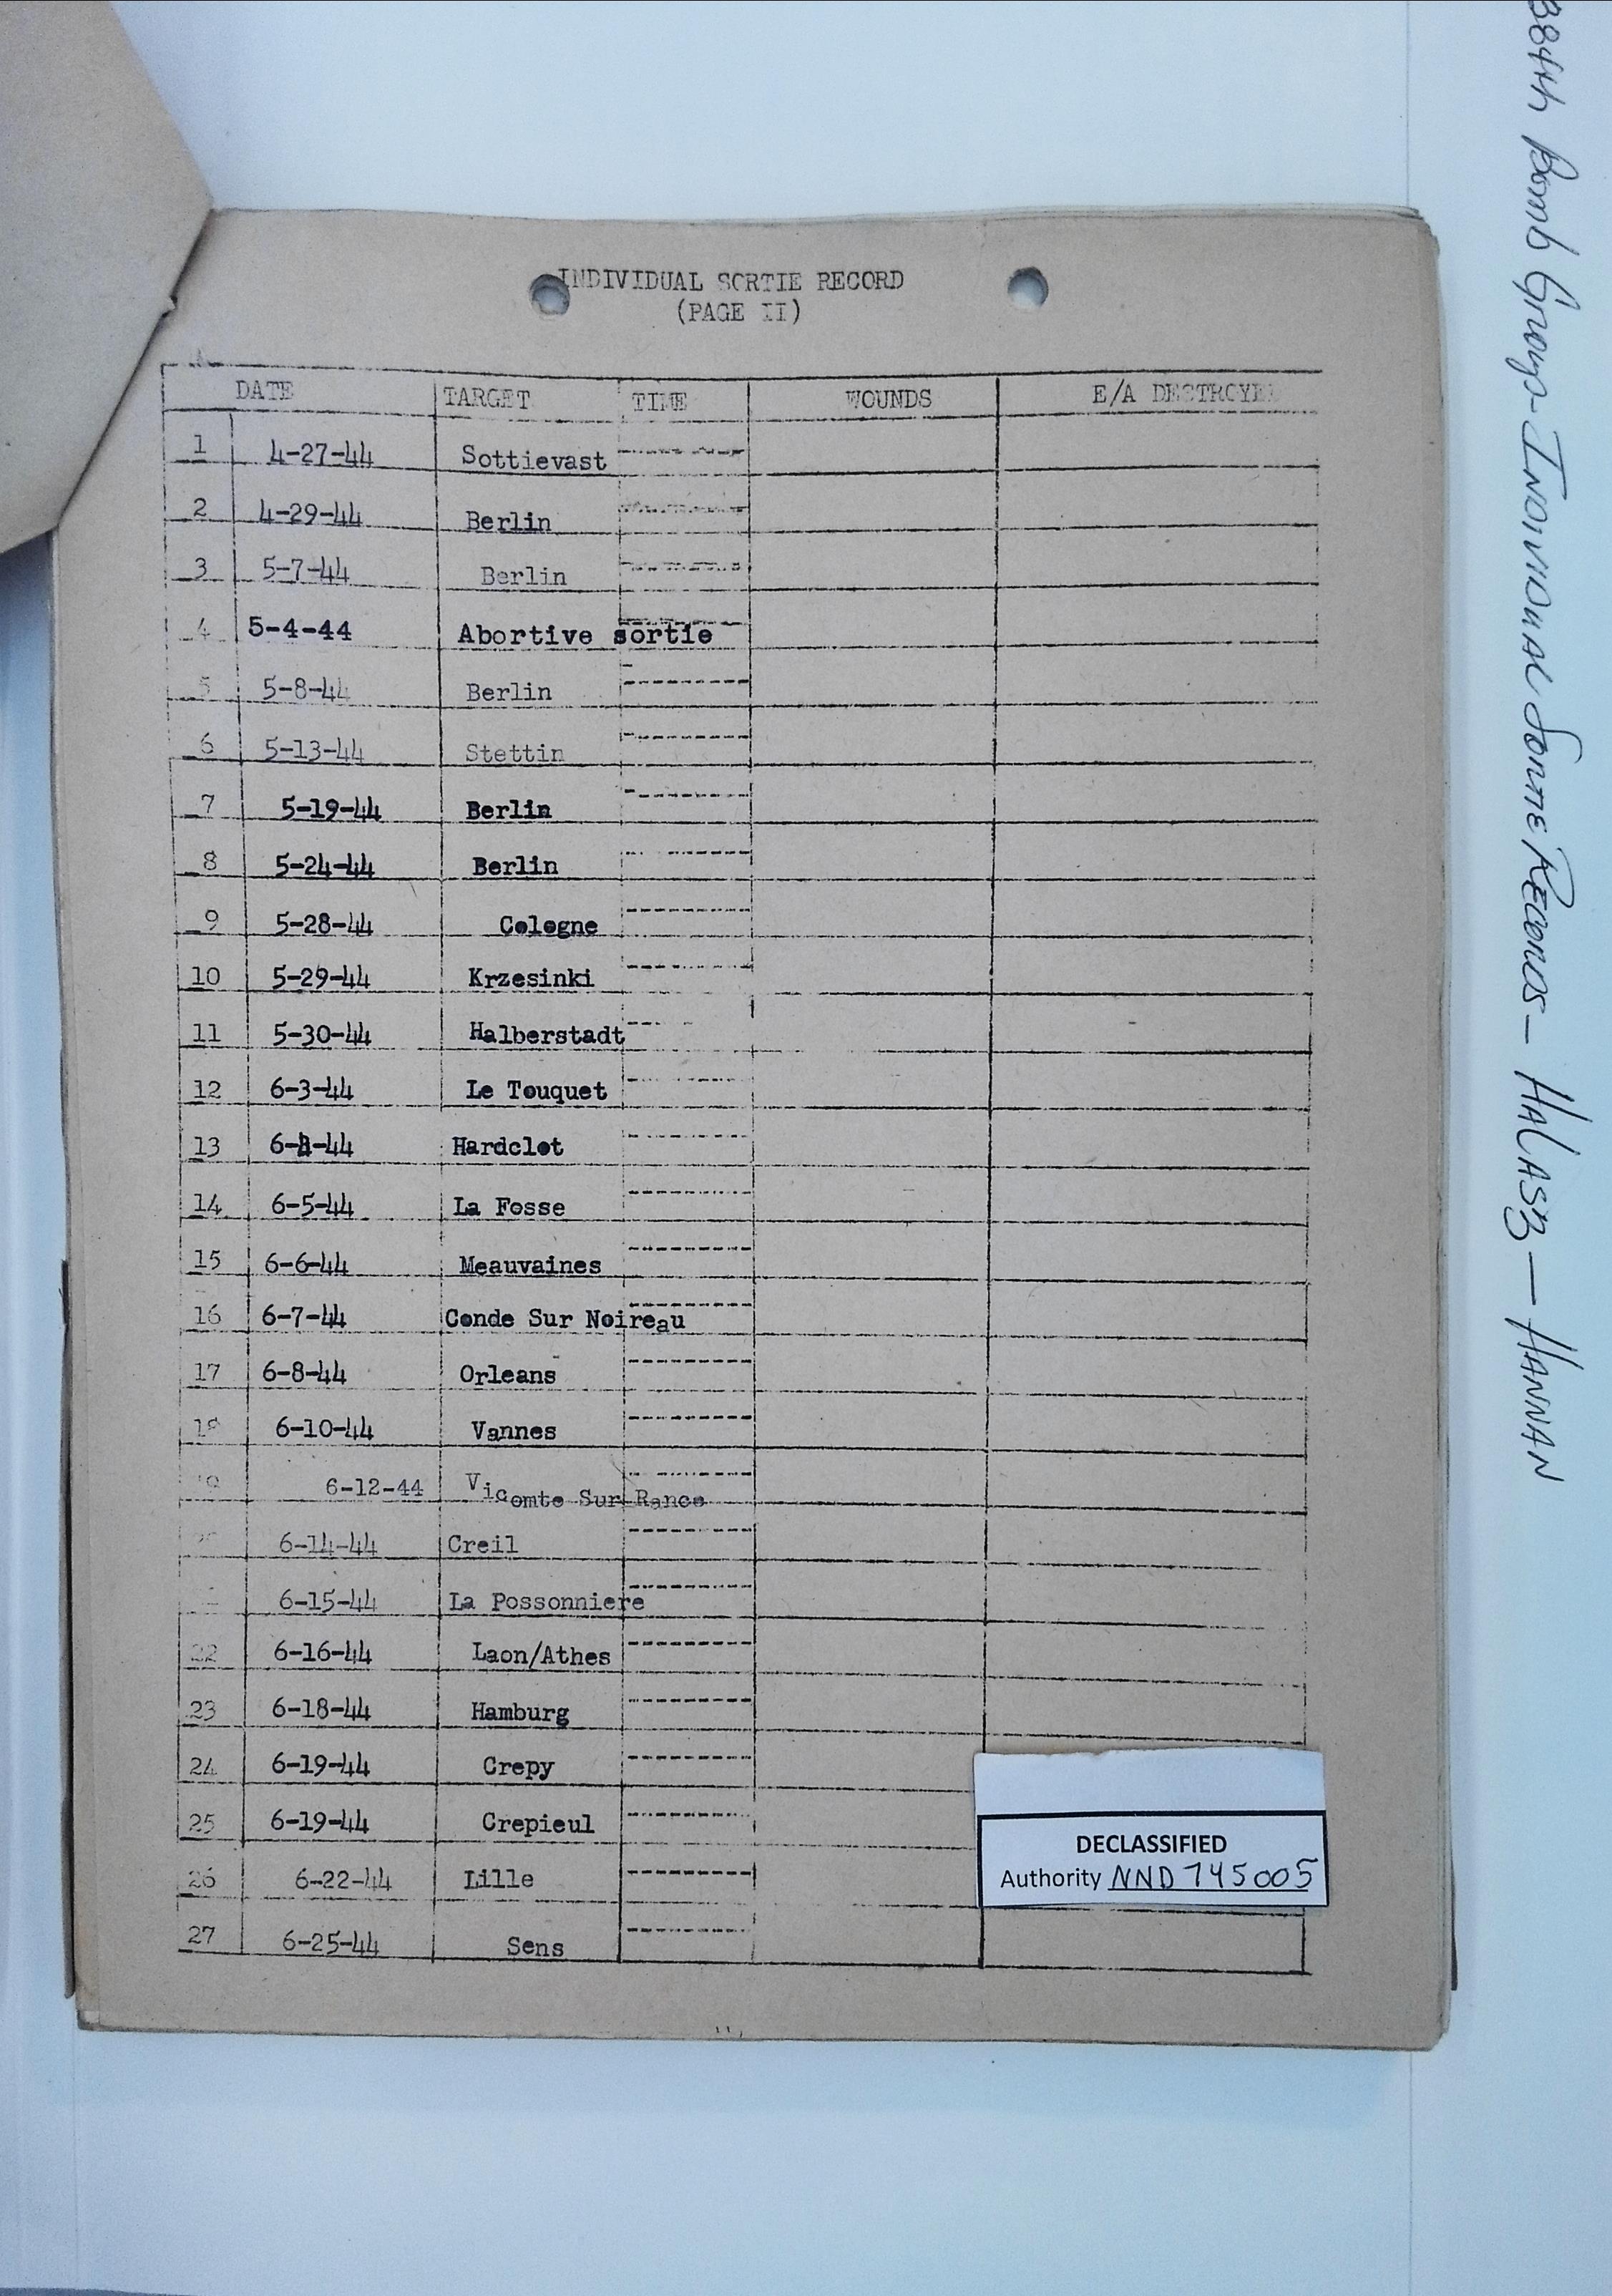 INDIVIDUAL SORTIE RECORD
(PAGE II)
DATE TARGET TIME WOUNDS E/A DESTROYE
1 4-27-44 Sottievast
2 4-29-44 Berlin
3 5-7-44 Berlin
4 5-4-44 Abortive sortie
5 5-8-44 Berlin
6 5-13-44 Stettin
7 5-19-44 Berlin
8 5-24-44 Berlin
9 5-28-44 Cologne
10 5-29-44 Krzesinki
11 5-30-44 Halberstadt
12 6-3-44 Le Touquet
13 Hardclot
14 6-5-44 La Fosse
15 6-6-44 Meauvaines
16 6-7-44 Conde Sur Noireau
17 6-8-44 Orleans
18 6-10-44 Vannes
6-12-44 Vicomte Sur Rance
6-14-44 Creil
6-15-44 La Possonniere
22 6-16-44 Laon/Athes
23 6-18-44 Hamburg
24 6-19-44 Crepy
25 6-19-44 Crepieul
26 6-22-44 Lille
27 6-25-44 Sens
DECLASSIFIED
Authority NND 745005
384th Bomb Group - Individual Sortie Records - HALASZ - HANNAN